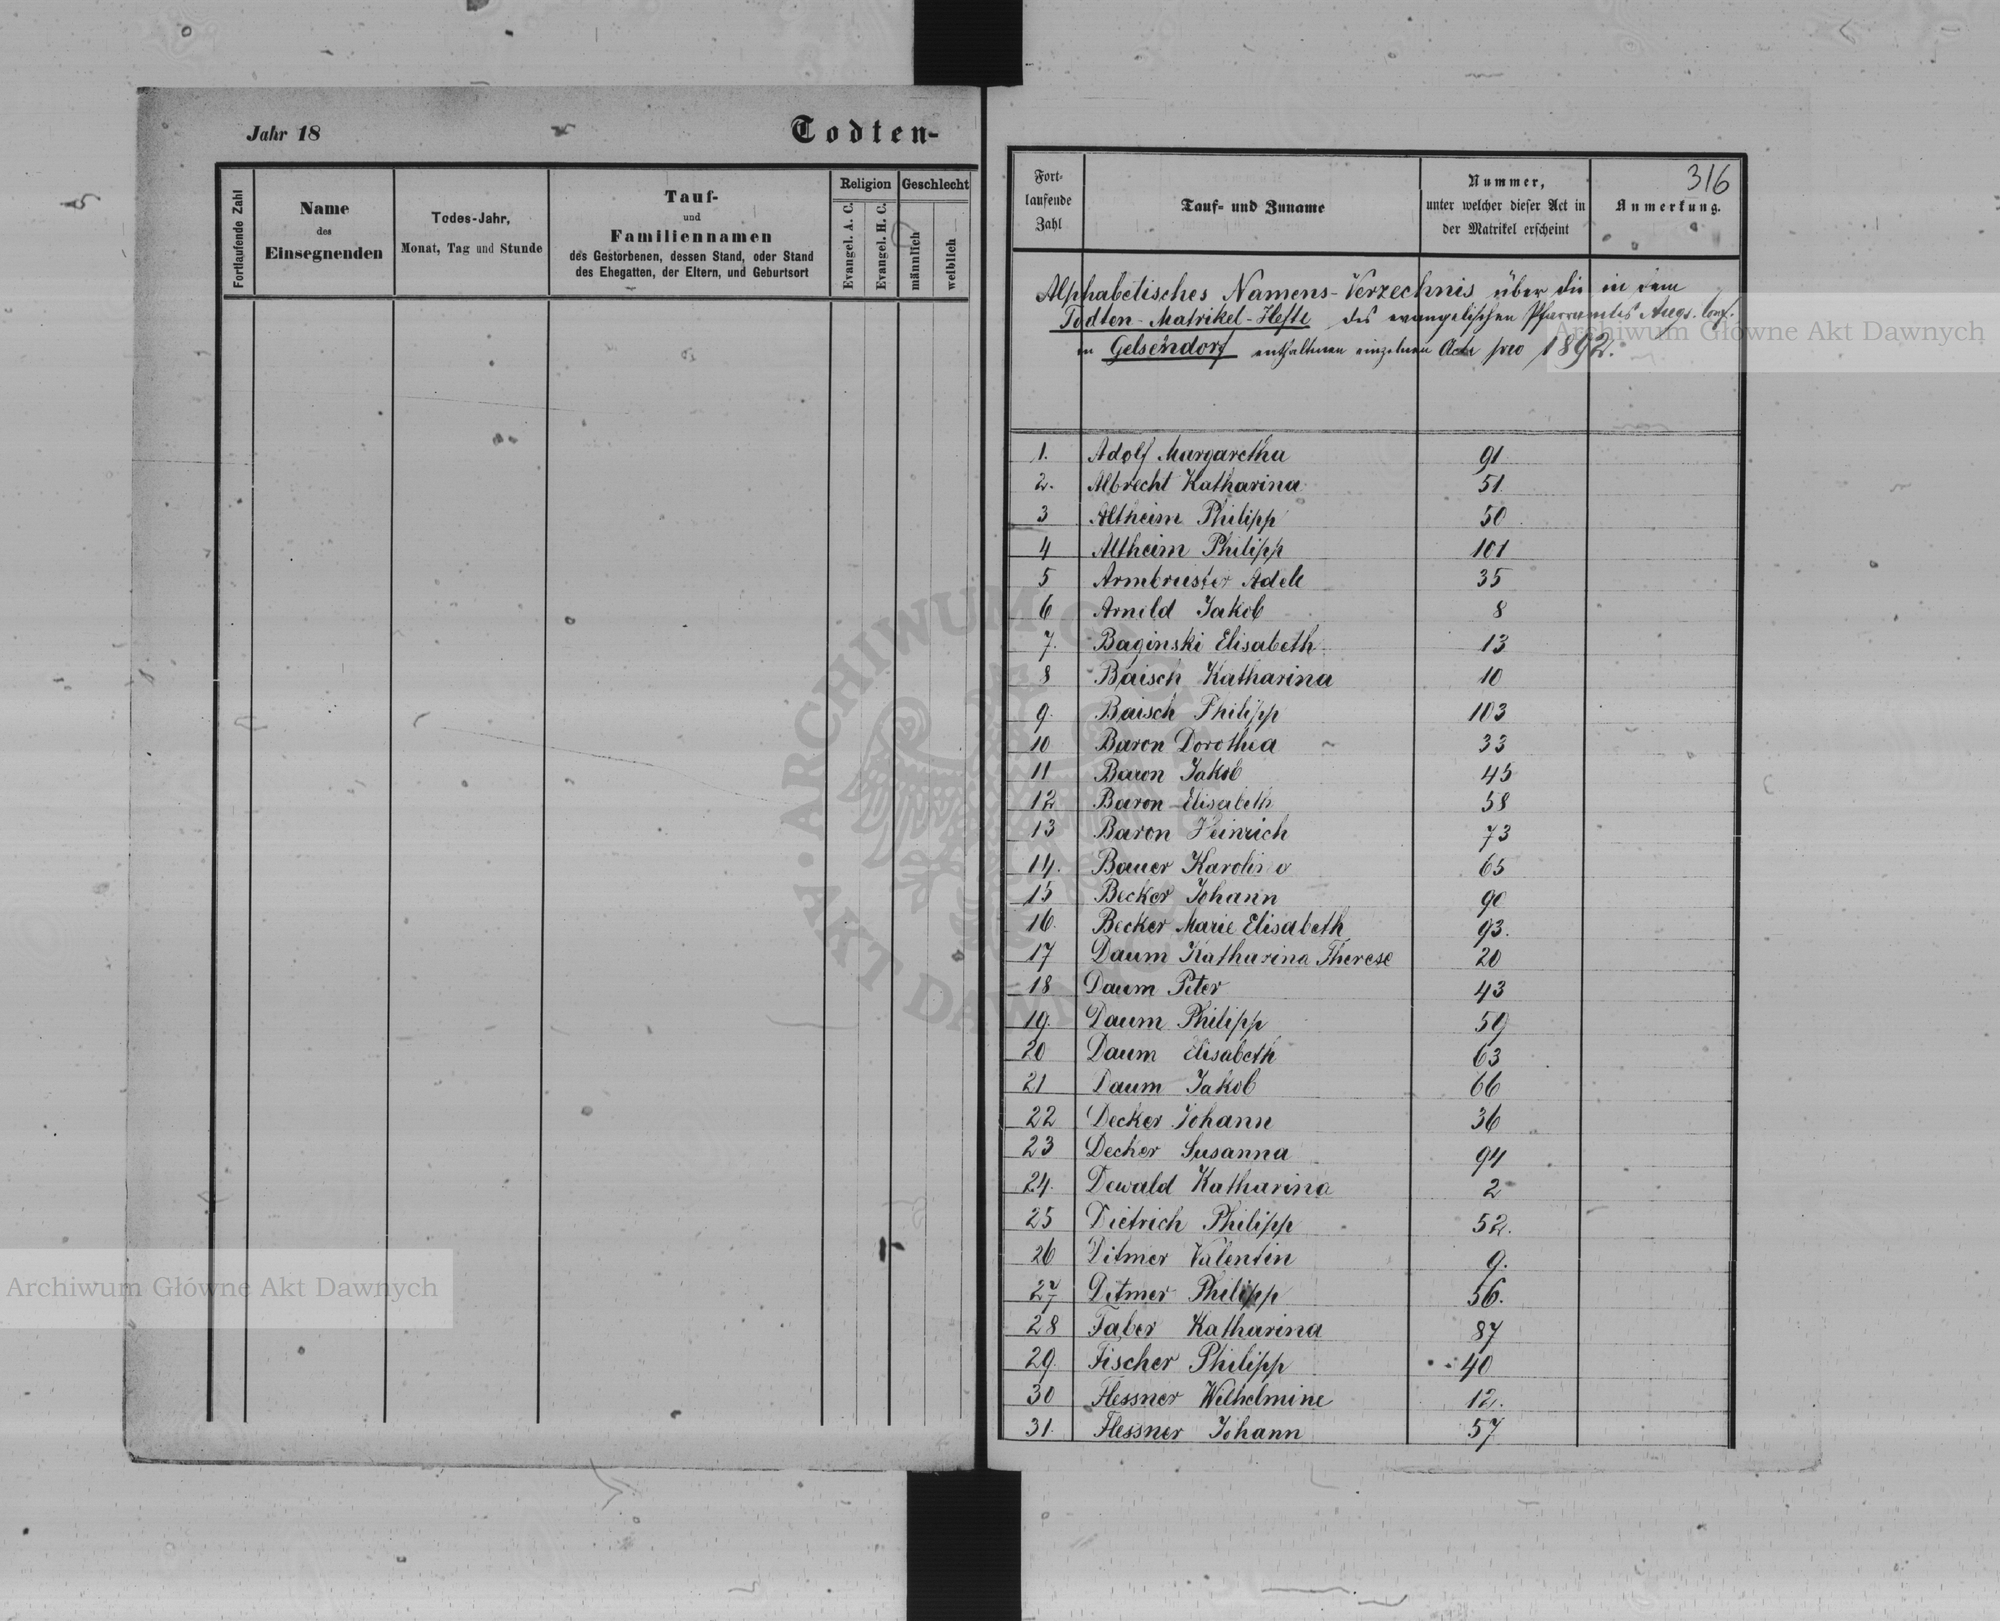 Jahr 18
Todten-
Fortlaufende Zahl
Name
des
Einsegnenden
Todes-Jahr,
Monat, Tag und Stunde
Tauf-
und
Familiennamen
des Gestorbenen, dessen Stand, oder Stand
des Ehegatten, der Eltern, und Geburtsort
Religion
Evangel. A. C.
Evangel. H. C.
Geschlecht
männlich
weiblich
316
Fort-
laufende
Zahl
Tauf- und Zuname
Nummer,
unter welcher dieser Act in
der Matrikel erscheint
Anmerkung.
Alphabetisches Namens-Verzechnis über die in dem
Todten-Matrikel-Hefte des evangelischen Pfarramtes Augs. Conf.
in Gelsendorf enthaltenen einzelnen Acte pro 1892.
1. Adolf Margaretha 91
2. Albrecht Katharina 51
3 Altheim Philipp 50
4 Altheim Philipp 101
5 Armbruster Adele 35
6 Arnold Jakob 8
7. Baginski Elisabeth 13
8 Baisch Katharina 10
9. Baisch Philipp 103
10 Baron Dorothea 33
11 Baron Jakob 45
12 Baron Elisabeth 58
13 Baron Heinrich 73
14. Bauer 65
15 Becker Johann 90
16. Becker Marie Elisabeth 93.
17 Daum Katharina Therese 20
18 Daum Peter 43
19. Daum Philipp 59
20 Daum Elisabeth 63
21 Daum Jakob 66
22 Decker Johann 36
23 Decker Susanna 94
24. Dewald Katharina 2
25 Dietrich Philipp 52.
26 Ditmer Valentin 9.
27 Ditmer Philipp 56.
28 Faber Katharina 87
29. Fischer Philipp 40
30 Flessner Wilhelmine 12.
31. Flessner Johann 57
Archiwum Główne Akt Dawnych
Archiwum Główne Akt Dawnych